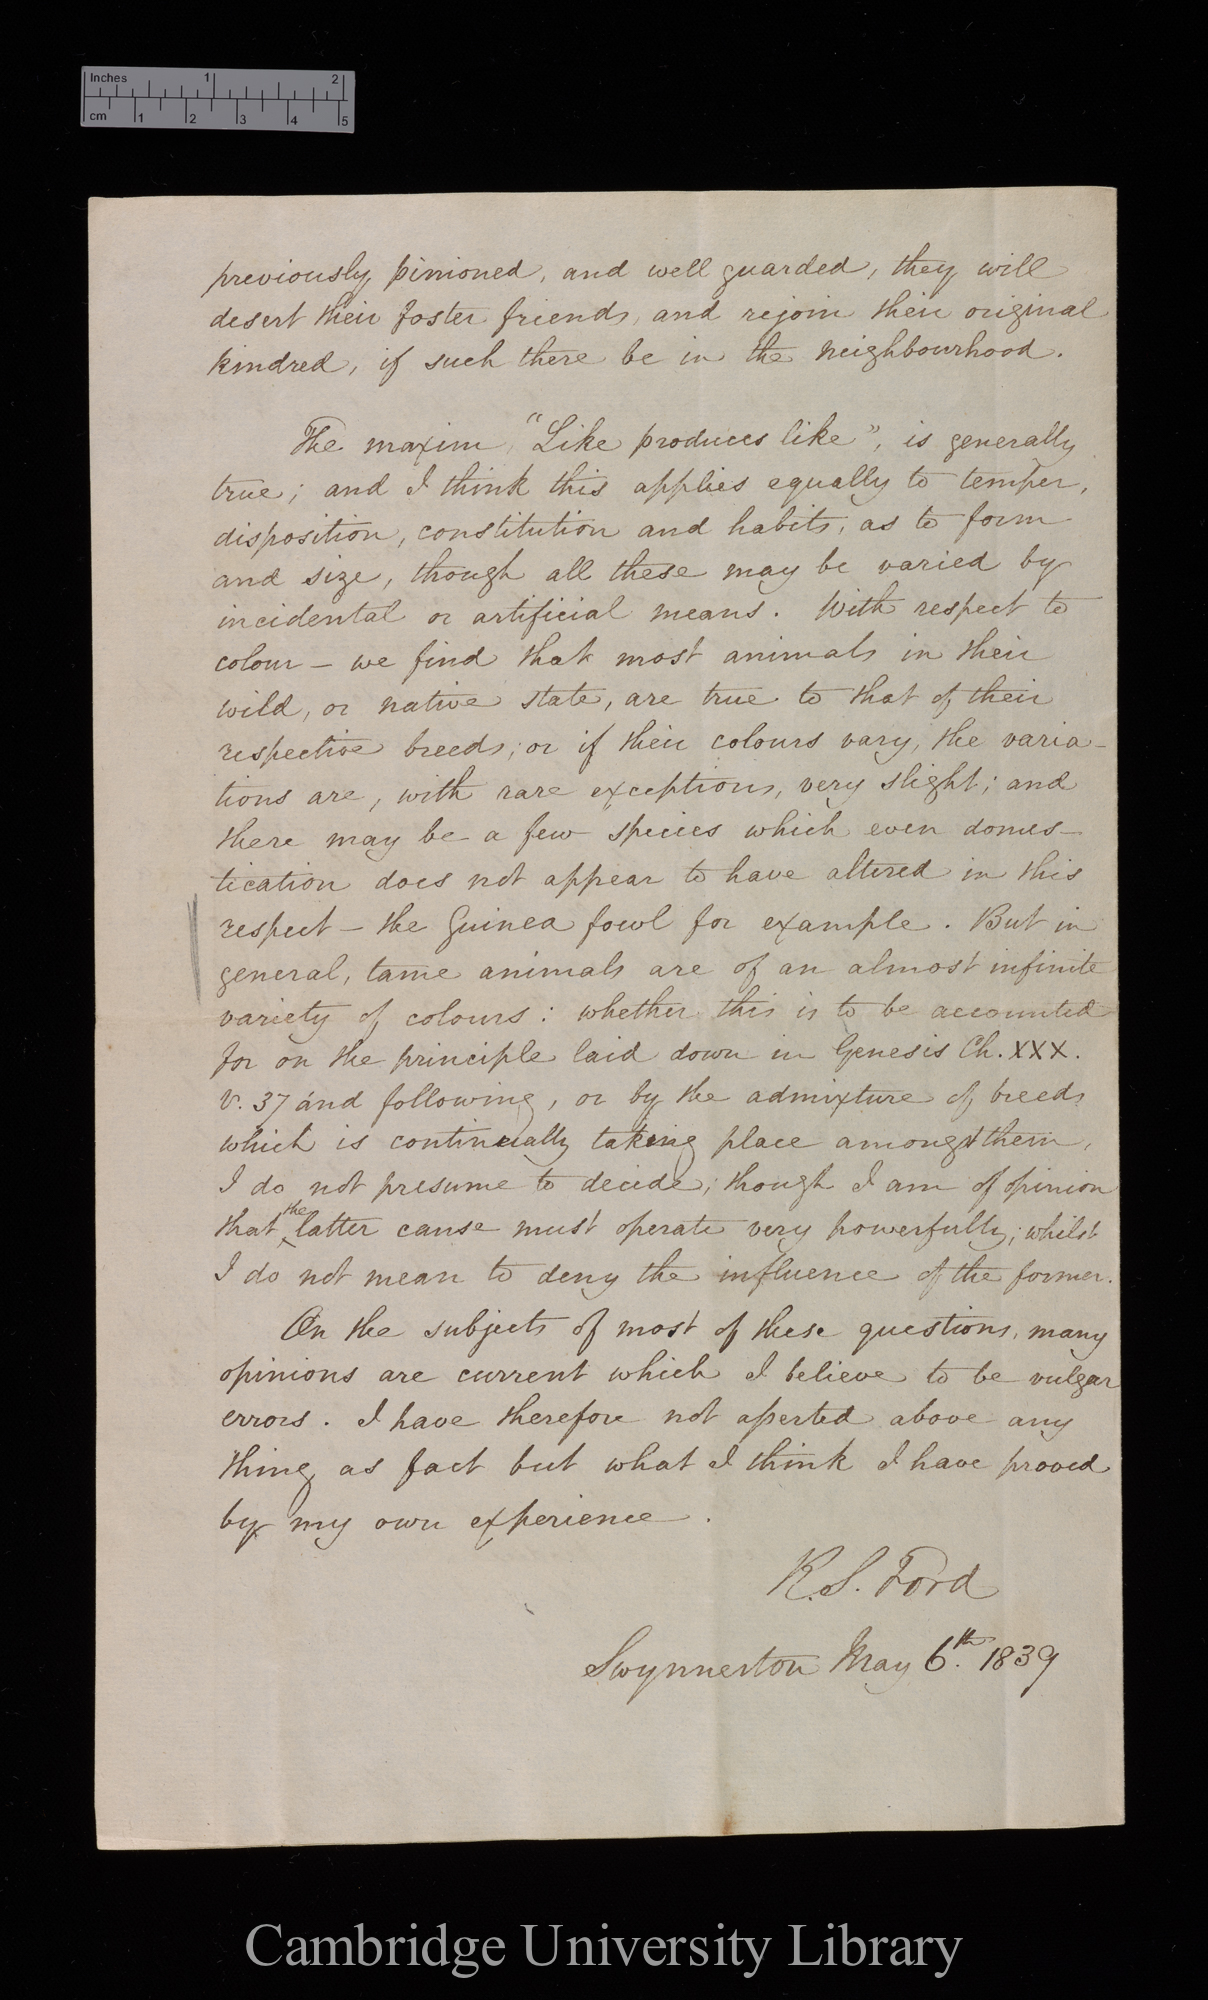 Inches 1 2
cm 1 2 3 4 5
previously pinioned, and well guarded, they will
desert their foster friends, and rejoin their original
kindred, if such there be in the neighbourhood.
The maxim, "Like produces like", is generally
true; and I think this applies equally to temper,
disposition, constitution and habits, as to form
and size, though all these may be varied by
incidental or artificial means. With respect to
colour – we find that most animals in their
wild, or native state, are true to that of their
respective breeds; or if their colours vary, the varia-
tions are, with rare exceptions, very slight; and
there may be a few species which even domes-
tication does not appear to have altered in this
respect – the Guinea fowl for example. But in
general, tame animals are of an almost infinite
variety of colours: whether this is to be accounted
for on the principle laid down in Genesis Ch. XXX.
V. 37 and following, or by the admixture of breeds
which is continually taking place amongst them,
I do not presume to decide; though I am of opinion
that the latter cause must operate very powerfully; whilst
I do not mean to deny the influence of the former.
On the subjects of most of these questions, many
opinions are current which I believe to be vulgar
errors. I have therefore not asserted above any
thing as fact but what I think I have proved
by my own experience.
R. S. Ford
Swynnerton May 6th. 1839
Cambridge University Library